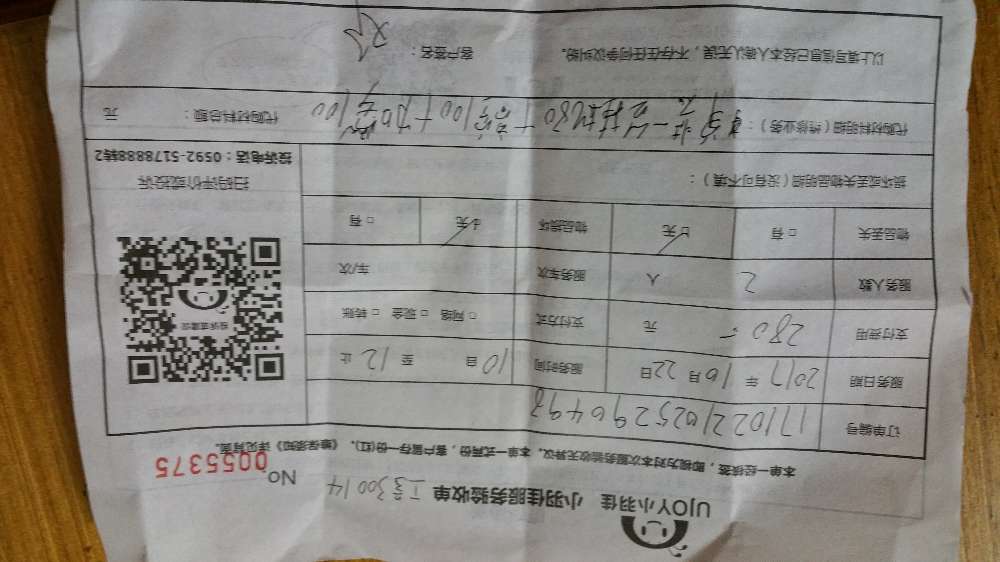 UJOY小羽佳 小羽佳服务验收单 工号30014 No 0055375
本单一经续签，即视为对本次服务验收无异议。本单一式两份，客户留存一份(红)。《维保须知》详见背面。
订单编号 171022102529649498
服务日期 2017 年 10 月 22 日 服务时间 10 自 至 12 止
支付费用 280 元 支付方式 □ 网络 □ 现金 □ 转账
服务人数 2 人 服务车次 车/次
物品丢失 □ 有 ☑ 无 物品损坏 ☑ 无 □ 有
损坏或丢失物品明细（没有可不填）：
投诉或建议
扫码评价或投诉
投诉电话：0592-5178888转2
代购材料明细（维修业务）： 280 + 100 + 100 代购材料总额： 元
以上填写信息已经本人确认无误，不存在任何争议纠纷。 客户签名：